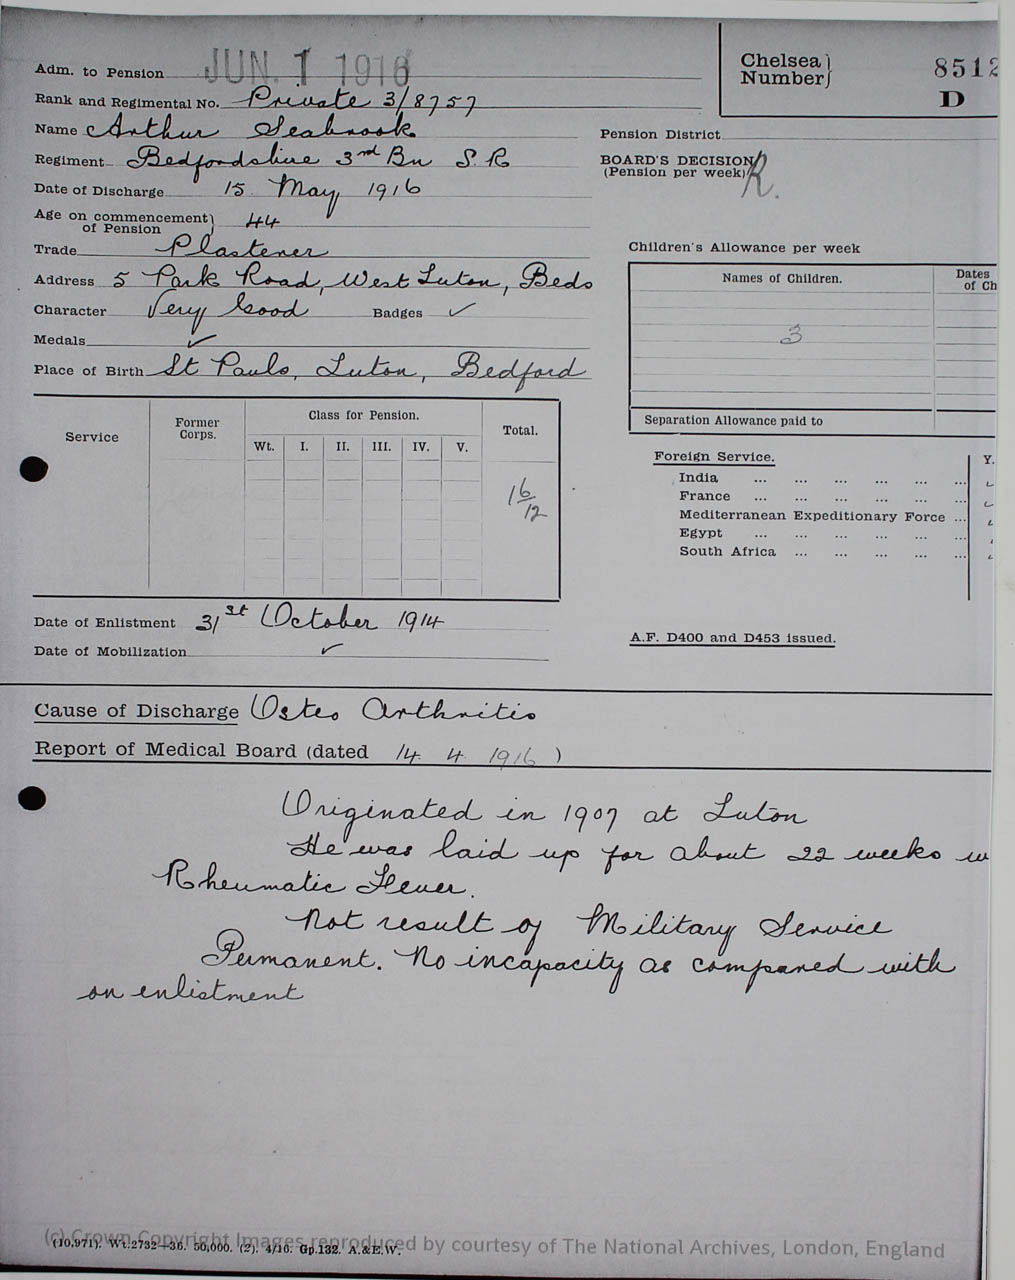 Adm. to Pension JUN. 1 1916
Chelsea Number 8512
D
Rank and Regimental No. Private 3/8757
Name Arthur Seabrook
Pension District
Regiment Bedfordshire 3rd Bn S. R
BOARD'S DECISION
(Pension per week) R.
Date of Discharge 15 May 1916
Age on commencement of Pension 44
Trade Plasterer
Children's Allowance per week
Address 5 Park Road, West Luton, Beds
Names of Children. Dates
of Ch
Character Very Good Badges ✓
3
Medals ✓
Place of Birth St Pauls, Luton, Bedford
Separation Allowance paid to
Service Former Corps. Class for Pension. Total.
Wt. I. II. III. IV. V.
16/12
Foreign Service. Y.
India ... ... ... ... ... ...
France ... ... ... ... ... ...
Mediterranean Expeditionary Force ...
Egypt ... ... ... ... ... ...
South Africa ... ... ... ... ...
Date of Enlistment 31st October 1914
A.F. D400 and D453 issued.
Date of Mobilization ✓
Cause of Discharge Osteo Arthritis
Report of Medical Board (dated 14. 4. 1916)
Originated in 1907 at Luton
He was laid up for about 22 weeks w
Rheumatic Fever.
Not result of Military Service
Permanent. No incapacity as compared with
on enlistment
(c) Crown Copyright Images reproduced by courtesy of The National Archives, London, England
(10,971). Wt.2732—36. 50,000. (2). 4/16. Gp.132. A.&E.W.